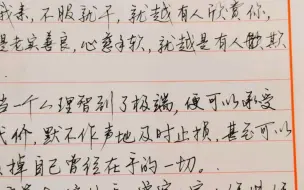 我素，不服就干，就越有人欣赏你，
是老实善良，心慈手软，就越是有人欺欺
当一个人理智到了极端，便可以承受
代价，默不作声地及时止损，甚至可以
掉自己曾经在乎的一切。